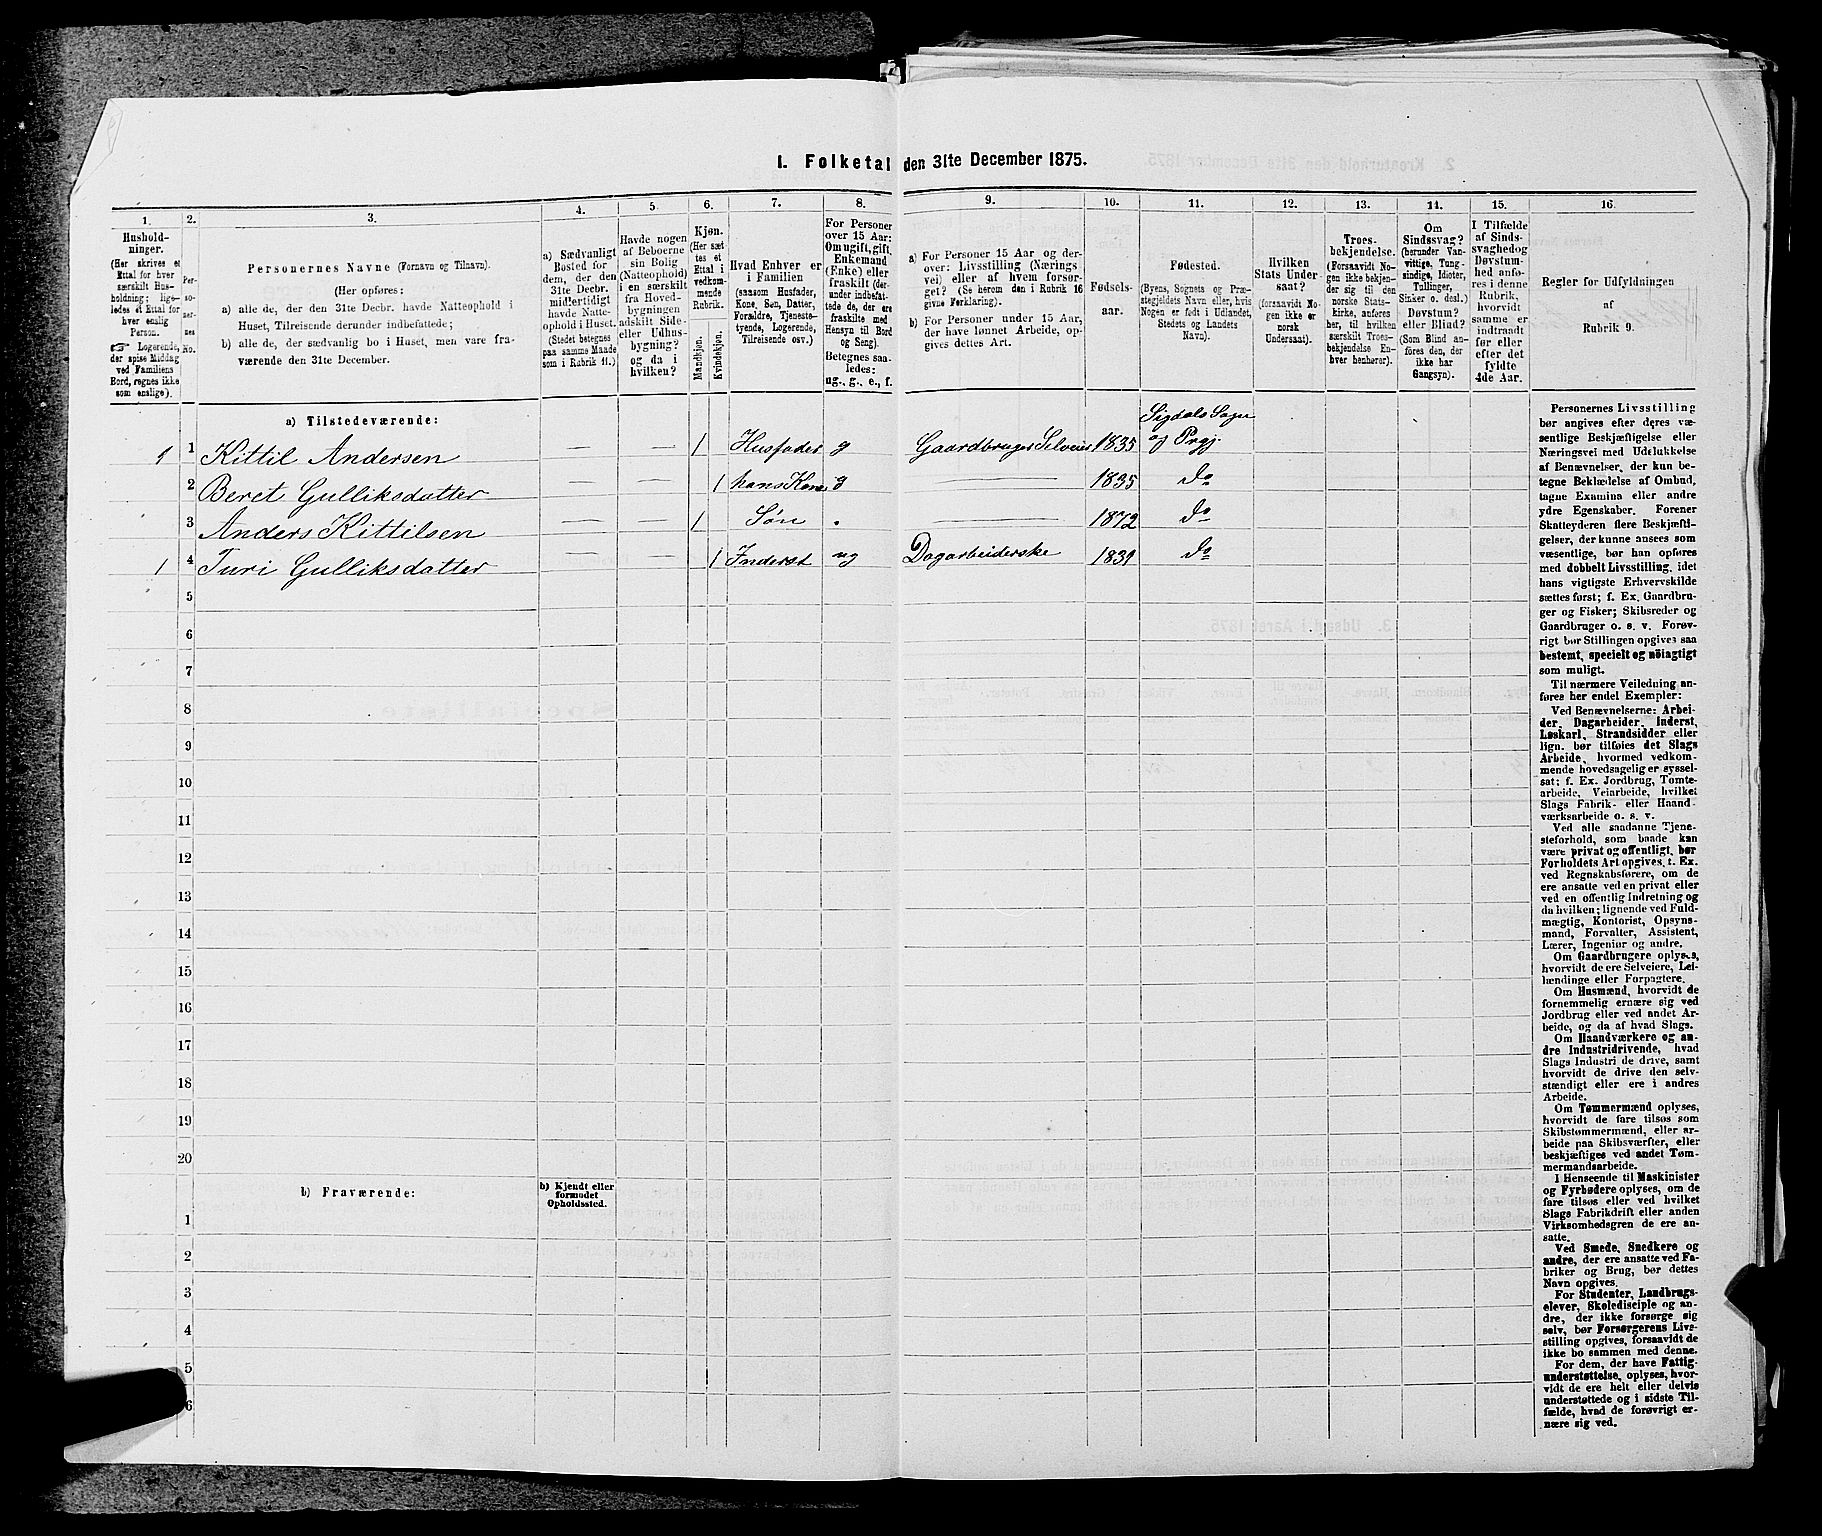 I. Folketal den 31te December 1875.
1.
2.
3.
4.
5.
6.
7.
8.
9.
10.
11.
12.
13.
14.
15.
16.
Hushold-
ninger.
(Her skrives et
Ettal for hver
særskilt Hus-
holdning; lige-
ledes et Ettal for
hver enslig
Person.
☞ Logerende,
der spise Middag
ved Familiens
Bord, regnes ikke
som enslige).
Per-
so-
ner-
nes
No.
Personernes Navne (Fornavn og Tilnavn).
(Her opføres:
a) alle de, der den 31te Decbr. havde Natteophold i
Huset, Tilreisende derunder indbefattede;
b) alle de, der sædvanlig bo i Huset, men vare fra-
værende den 31te December.
a) Sædvanligt
Bosted for
dem, der den
31te Decbr.
midlertidigt
havde Natte-
ophold i Huset.
(Stedet betegnes
paa samme Maade
som i Rubrik 11.)
Havde nogen
af Beboerne
sin Bolig
(Natteophold)
i en særskilt
fra Hoved-
bygningen
adskilt Side-
eller Udhus-
bygning?
og da i
hvilken?
Kjøn.
(Her sæt-
tes et
Ettal i
vedkom-
mende
Rubrik.
Mandkjøn.
Kvindekjøn.
Hvad Enhver er
i Familien
(saasom Husfader,
Kone, Søn, Datter,
Forældre, Tjeneste-
tyende, Logerende,
Tilreisende osv.)
For Personer
over 15 Aar:
Om ugift, gift,
Enkemand
(Enke) eller
fraskilt (der-
under indbefat-
tede de, der ere
fraskilte med
Hensyn til Bord
og Seng).
Betegnes saa-
ledes:
ug., g., e., f.
a) For Personer 15 Aar og der-
over: Livsstilling (Nærings
vei) eller af hvem forsør-
get? (Se herom den i Rubrik 16
givne Forklaring).
b) For Personer under 15 Aar,
der have lønnet Arbeide, op-
gives dettes Art.
Fødsels-
aar.
Fødested.
(Byens, Sognets og Præ-
stegjeldets Navn eller, hvis
Nogen er født i Udlandet,
Stedets og Landets
Navn).
Hvilken
Stats Under-
saat?
(forsaavidt No-
gen ikke er
norsk
Undersaat).
Troes-
bekjendelse.
(Forsaavidt No-
gen ikke bekjen-
der sig til den
norske Stats-
kirke, anføres
her, til hvilken
særskilt Troes-
bekjendelse En-
hver henhører).
Om
Sindssvag?
(herunder Van-
vittige, Tung-
sindige, Idioter,
Tullinger,
Sinker o. desl.)
Døvstum?
eller Blind?
(Som Blind an-
føres den, der
ikke har
Gangsyn).
I Tilfælde
af Sinds-
svaghed og
Døvstum-
hed anfø-
res i denne
Rubrik,
hvorvidt
samme er
indtraadt
før eller
efter det
fyldte
4de Aar.
Regler for Udfyldningen
af
Rubrik 9.
a) Tilstedeværende:
Sigdals Sogn
1 1 Kittil Andersen — — 1 Husfader g Gaardbruger Selveier 1835 og Prgj.
2 Beret Gulliksdatter — — 1 hans Kone g — 1835 do
3 Anders Kittilsen — — 1 Søn . — 1872 do
1 4 Turi Gulliksdatter — — 1 Inderst ug Dagarbeiderske 1831 do
5
6
7
8
9
10
11
12
13
14
15
16
17
18
19
20
b) Fraværende:
b) Kjendt eller
formodet
Opholdssted.
1
2
3
4
5
6
Personernes Livsstilling
bør angives efter deres væ-
sentlige Beskjæftigelse eller
Næringsvei med Udelukkelse
af Benævnelser, der kun be-
tegne Beklædelse af Ombud,
tagne Examina eller andre
ydre Egenskaber. Forener
Skatteyderen flere Beskjæfti-
gelser, der kunne ansees som
væsentlige, bør han opføres
med dobbelt Livsstilling, idet
hans vigtigste Erhvervskilde
sættes først; f. Ex. Gaardbru-
ger og Fisker; Skibsreder og
Gaardbruger o. s. v. Forøv-
rigt bør Stillingen opgives saa
bestemt, specielt og nöiagtigt
som muligt.
Til nærmere Veiledning an-
føres her endel Exempler:
Ved Benævnelserne: Arbei-
der, Dagarbeider, Inderst,
Løskarl, Strandsidder eller
lign. bør tilføies det Slags
Arbeide, hvormed vedkom-
mende hovedsagelig er syssel-
sat; f. Ex. Jordbrug, Tømte-
arbeide, Veiarbeide, hvilket
Slags Fabrik- eller Haand-
værksarbeide o. s. v.
Ved alle saadanne Tjene-
steforhold, som baade kan
være privat og offentligt, bør
Forholdets Art opgives, t. Ex.
ved Regnskabsførere, om de
ere ansatte ved en privat eller
ved en offentlig Indretning og
da hvilken; lignende ved Fuld-
mægtig, Kontorist, Opsyns-
mand, Forvalter, Assistent,
Lærer, Ingeniør og andre.
Om Gaardbrugere oplyses,
hvorvidt de ere Selveiere, Lei-
lændinge eller Forpagtere.
Om Husmænd, hvorvidt de
fornemmelig ernære sig ved
Jordbrug eller ved andet Ar-
beide, og da af hvad Slags.
Om Haandværkere og an-
dre Industridrivende, hvad
Slags Industri de drive, samt
hvorvidt de drive den selv-
stændigt eller ere i andres
Arbeide.
Om Tømmermænd oplyses,
hvorvidt de fare tilsøs som
Skibstømmermænd, eller ar-
beide paa Skibsværfter, eller
beskjæftiges ved andet Tøm-
mermandsarbeide.
I Henseende til Maskinister
og Fyrbødere oplyses, om de
fare tilsøs eller ved hvilket
Slags Fabrikdrift eller anden
Virksomhedsgren de ere an-
satte.
Ved Smede, Snedkere og
andre, der ere ansatte ved Fa-
briker og Brug, bør dettes
Navn opgives.
For Studenter, Landbrugs-
elever, Skoledisciple og an-
dre, der ikke forsørge sig
selv, bør Forsørgerens Livs-
stilling opgives, forsaavidt de
ikke bo sammen med denne.
For dem, der have Fattig-
understøttelse, oplyses, hvor-
vidt de ere helt eller delvis
understøttede og i sidste Til-
fælde, hvad de forøvrigt er-
nære sig ved.